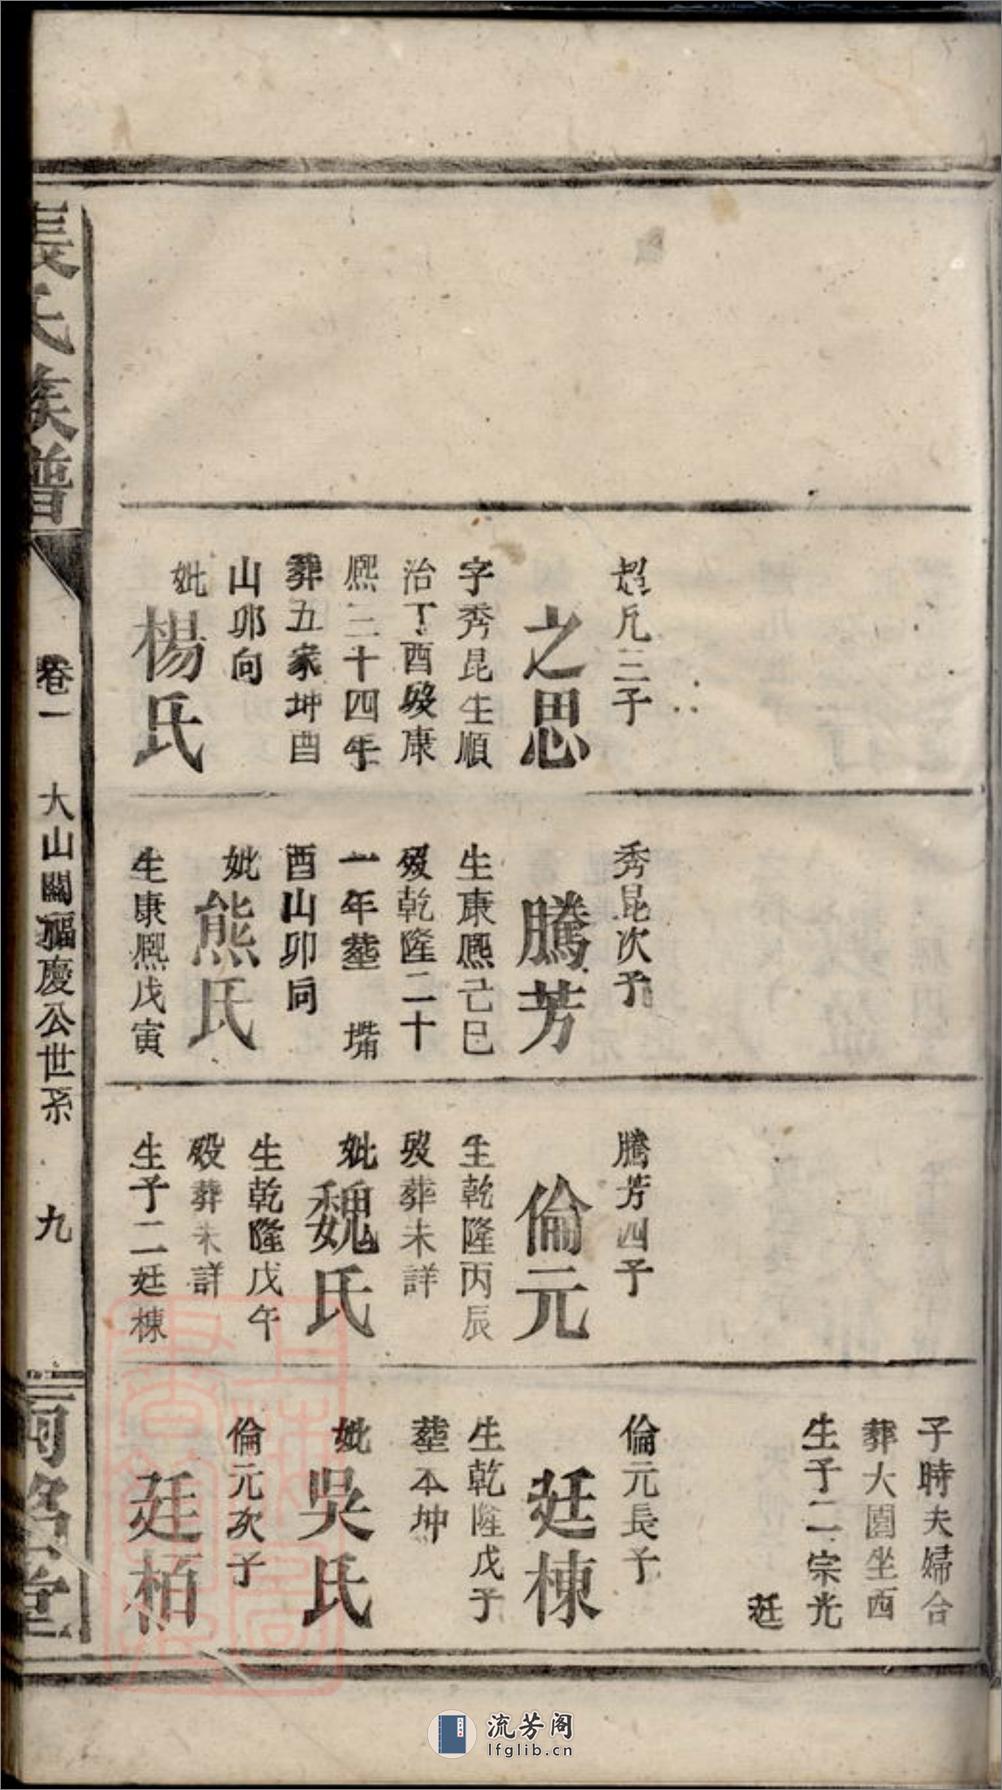 超凡三子
之思
字秀昆生順
治丁酉歿康
熙三十四年
葬五家坤酉
山卯向
妣
楊氏
秀昆次子
騰芳
生康熙己巳
歿乾隆二十
一年塟 墦
酉山卯同
妣
熊氏
生康熙戊寅
騰芳四子
倫元
生乾隆丙辰
歿葬未詳
妣
魏氏
生乾隆戊午
歿葬未詳
生子二廷棟
子時夫婦合
葬大園坐酉
生子二宗光
廷
倫元長子
廷棟
生乾隆戊子
塟本坤
妣
吳氏
倫元次子
廷栢
張氏族譜
卷一 大山關福慶公世系 九
兩銘堂
流芳阁
lfglib.cn